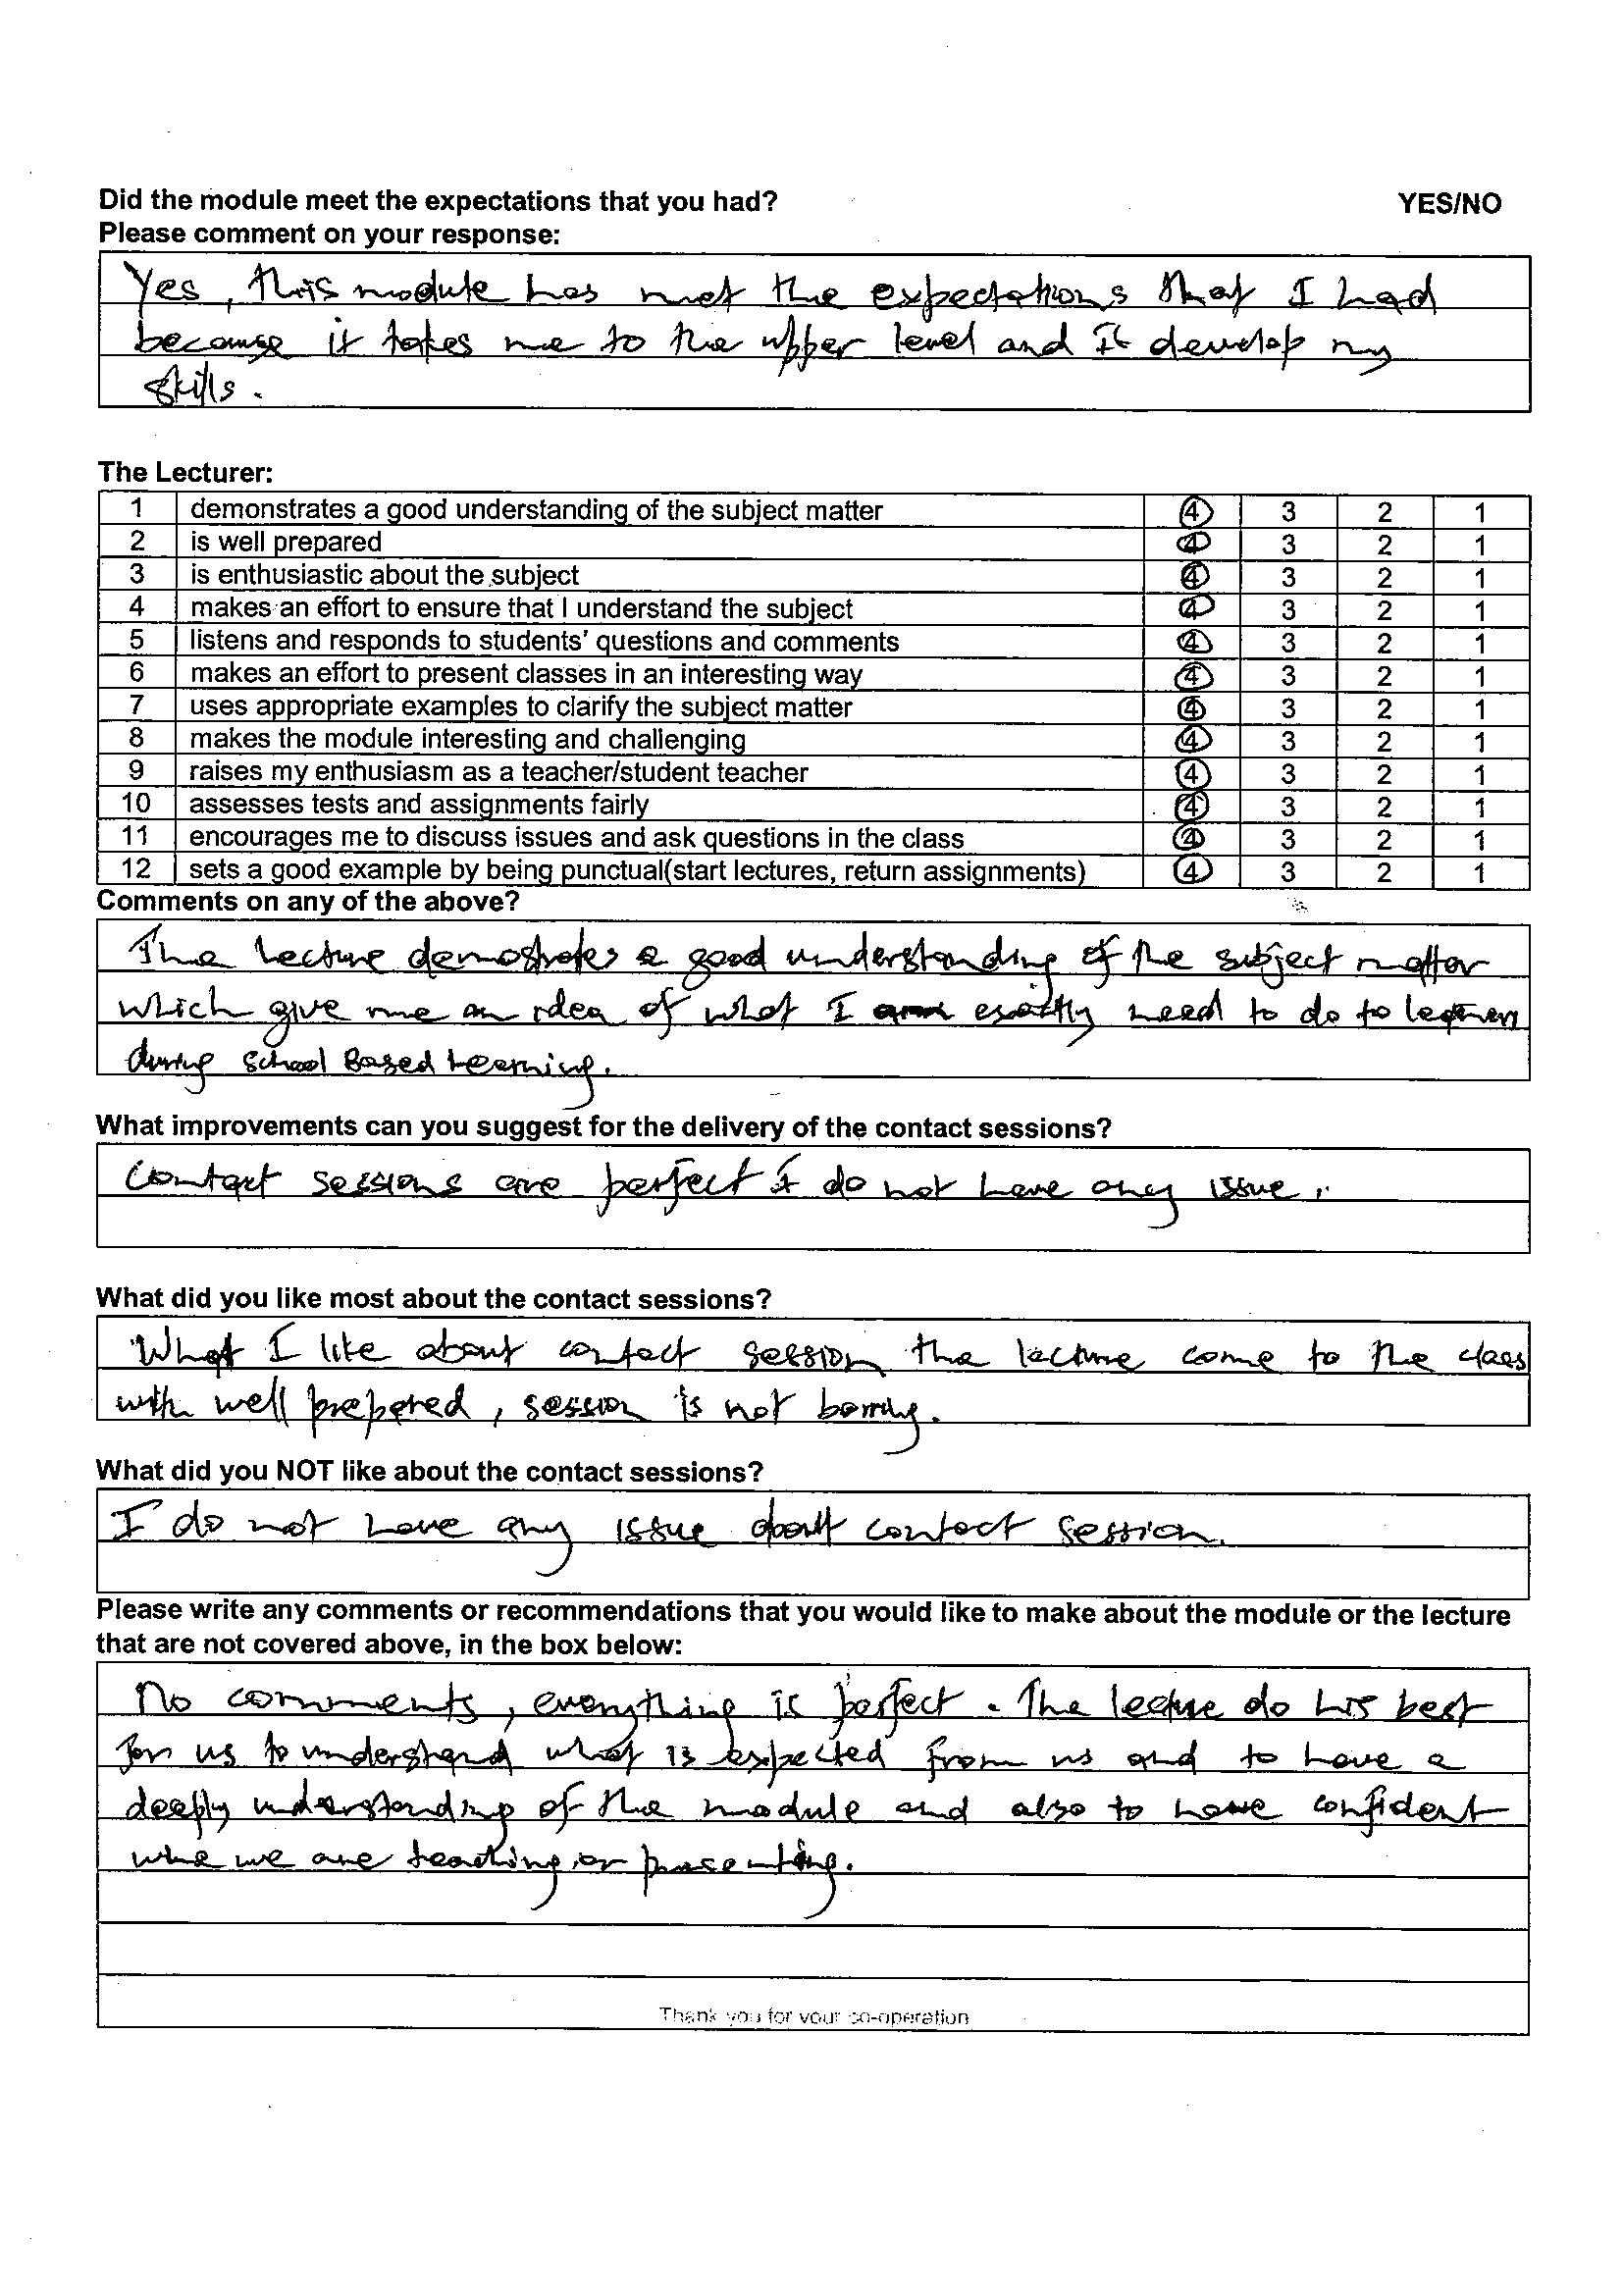 Did the module meet the expectations that you had? YES/NO
Please comment on your response:
Yes, this module has met the expectations that I had
because it takes me to the upper level and It develop my
skills.
The Lecturer:
1 demonstrates a good understanding of the subject matter 4 3 2 1
2 is well prepared 4 3 2 1
3 is enthusiastic about the subject 4 3 2 1
4 makes an effort to ensure that I understand the subject 4 3 2 1
5 listens and responds to students' questions and comments 4 3 2 1
6 makes an effort to present classes in an interesting way 4 3 2 1
7 uses appropriate examples to clarify the subject matter 4 3 2 1
8 makes the module interesting and challenging 4 3 2 1
9 raises my enthusiasm as a teacher/student teacher 4 3 2 1
10 assesses tests and assignments fairly 4 3 2 1
11 encourages me to discuss issues and ask questions in the class 4 3 2 1
12 sets a good example by being punctual(start lectures, return assignments) 4 3 2 1
Comments on any of the above?
The lecture demostrates a good understanding of the subject matter
which give me an idea of what I need to do to
during School Based Learning.
What improvements can you suggest for the delivery of the contact sessions?
Contact sessions are perfect I do not have any issue.
What did you like most about the contact sessions?
What I like about contact session the lecture come to the class
with well prepared, session is not borring.
What did you NOT like about the contact sessions?
I do not have any issue about contact session.
Please write any comments or recommendations that you would like to make about the module or the lecture
that are not covered above, in the box below:
No comments, everything is perfect. The lecture do his best
for us to understand what is expected from us and to have a
deeply understanding of the module and also to have confident
we are teaching or presenting.
Thank you for your co-operation